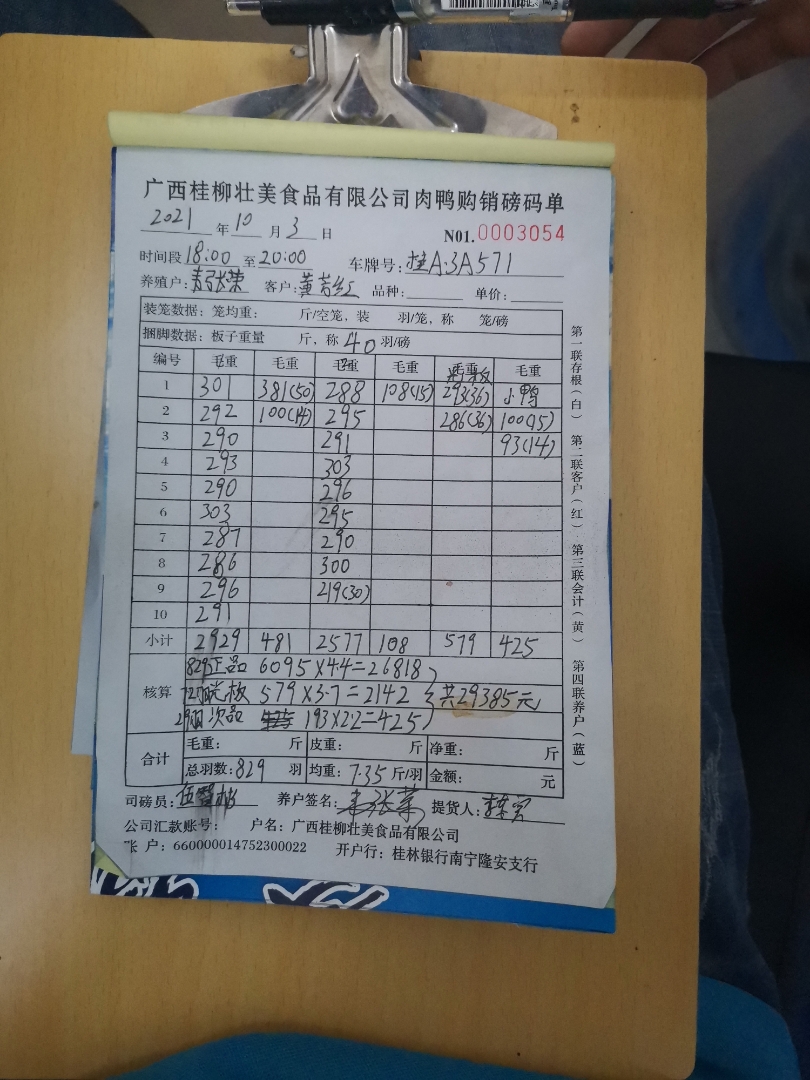 广西桂柳壮美食品有限公司肉鸭购销磅码单
2021 年 10 月 3 日 N01. 0003054
时间段 18:00 至 20:00 车牌号: 桂A·3A571
养殖户: 客户: 品种: 单价:
装笼数据: 笼均重: 斤/空笼, 装 羽/笼, 称 笼/磅
捆脚数据: 板子重量 斤, 称 40 羽/磅
编号 毛重 毛重 毛重 毛重 毛重 毛重
1 301 381(50) 288 108(15) 293(36) 小鸭
2 292 100(14) 295 286(36) 100(15)
3 290 291 93(14)
4 293 303
5 290 296
6 303 295
7 287 290
8 286 300
9 296 219(30)
10 291
小计 2929 481 2577 108 579 425
核算
829 正品 6095×4.4=26818
579×3.7=2142 共29385元
29 次品 193×2.2=425
合计 毛重: 斤 皮重: 斤 净重: 斤
总羽数: 829 羽 均重: 7.35 斤/羽 金额: 元
司磅员: 养户签名: 提货人:
公司汇款账号: 户名: 广西桂柳壮美食品有限公司
账 户: 660000014752300022 开户行: 桂林银行南宁隆安支行
第一联存根(白) 第二联客户(红) 第三联会计(黄) 第四联养户(蓝)